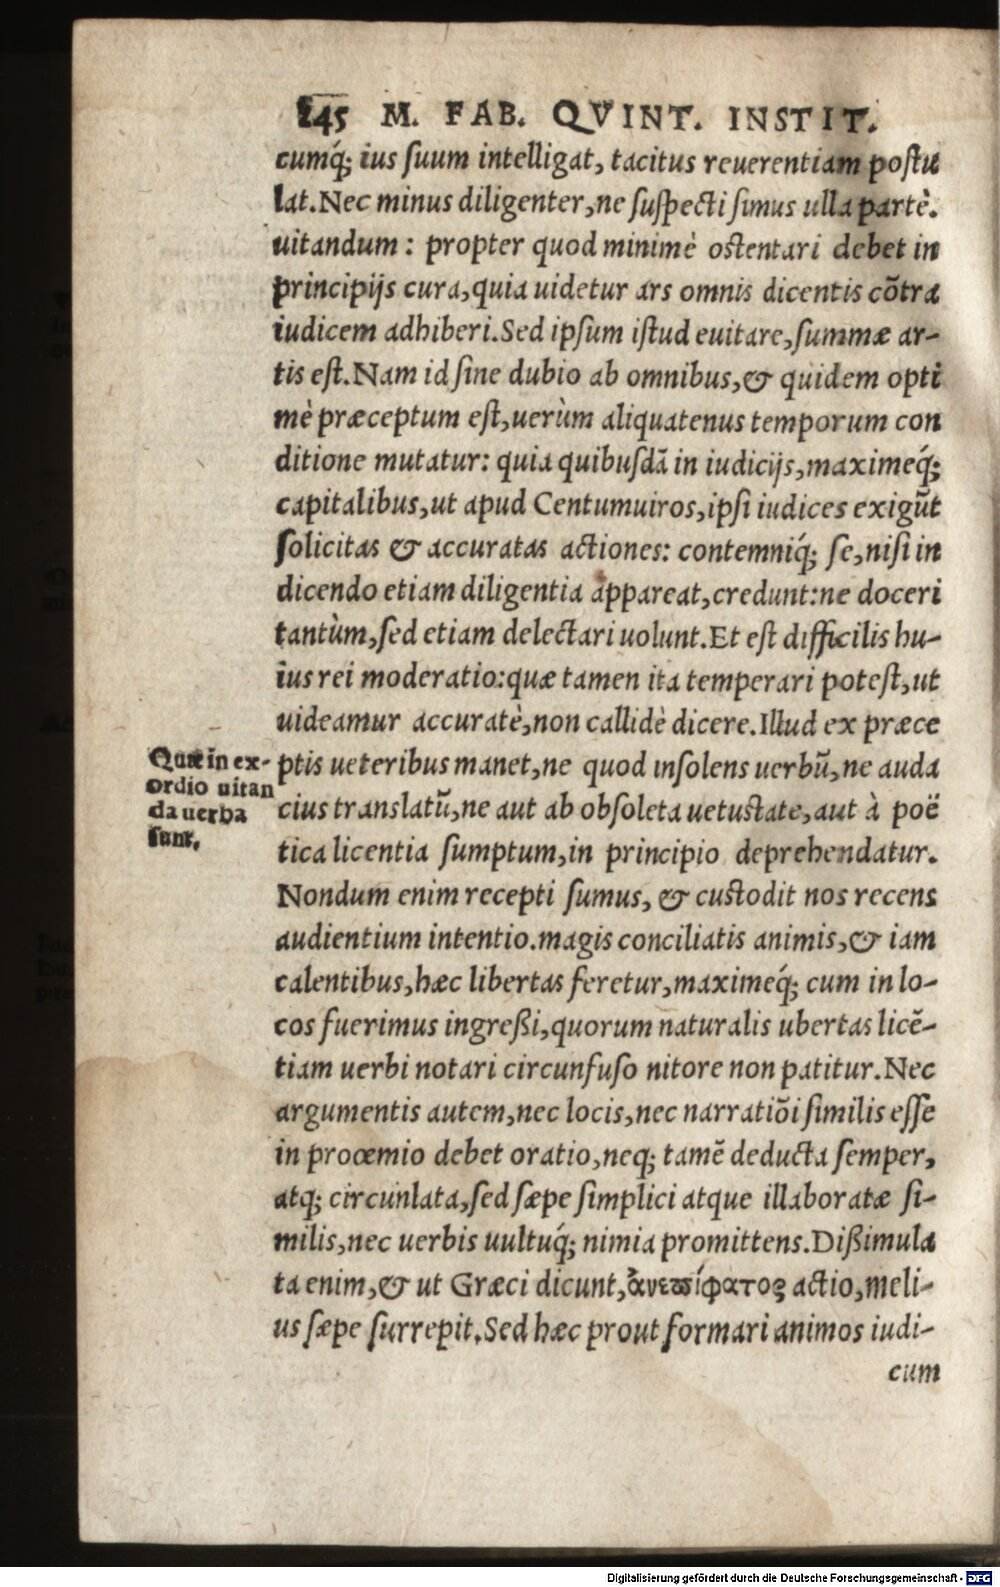 245 M. FAB. QVINT. INSTIT.
cumq́; ius suum intelligat, tacitus reuerentiam postu
lat. Nec minus diligenter, ne suspecti simus ulla partè.
uitandum: propter quod minimè ostentari debet in
principijs cura, quia uidetur ars omnis dicentis cõtra
iudicem adhiberi. Sed ipsum istud euitare, summæ ar-
tis est. Nam id sine dubio ab omnibus, & quidem opti
mè præceptum est, uerùm aliquatenus temporum con
ditione mutatur: quia quibusdã in iudicijs, maximeq́;
capitalibus, ut apud Centumuiros, ipsi iudices exigũt
solicitas & accuratas actiones: contemniq́; se, nisi in
dicendo etiam diligentia appareat, credunt: ne doceri
tantùm, sed etiam delectari uolunt. Et est difficilis hu-
ius rei moderatio: quæ tamen ita temperari potest, ut
uideamur accuratè, non callidè dicere. Illud ex præce
Quæ in ex-
ordio uitan
da uerba
sunt.
ptis ueteribus manet, ne quod insolens uerbũ, ne auda
cius translatũ, ne aut ab obsoleta uetustate, aut à poë
tica licentia sumptum, in principio deprehendatur.
Nondum enim recepti sumus, & custodit nos recens
audientium intentio. magis conciliatis animis, & iam
calentibus, hæc libertas feretur, maximeq́; cum in lo-
cos fuerimus ingreßi, quorum naturalis ubertas licẽ-
tiam uerbi notari circunfuso nitore non patitur. Nec
argumentis autem, nec locis, nec narratiõi similis esse
in proœmio debet oratio, neq; tamẽ deducta semper,
atq; circunlata, sed sæpe simplici atque illaboratæ si-
milis, nec uerbis uultuq́; nimia promittens. Dißimula
ta enim, & ut Græci dicunt, ἀνεπίφατος actio, meli-
us sæpe surrepit. Sed hæc prout formari animos iudi-
cum
Digitalisierung gefördert durch die Deutsche Forschungsgemeinschaft - DFG